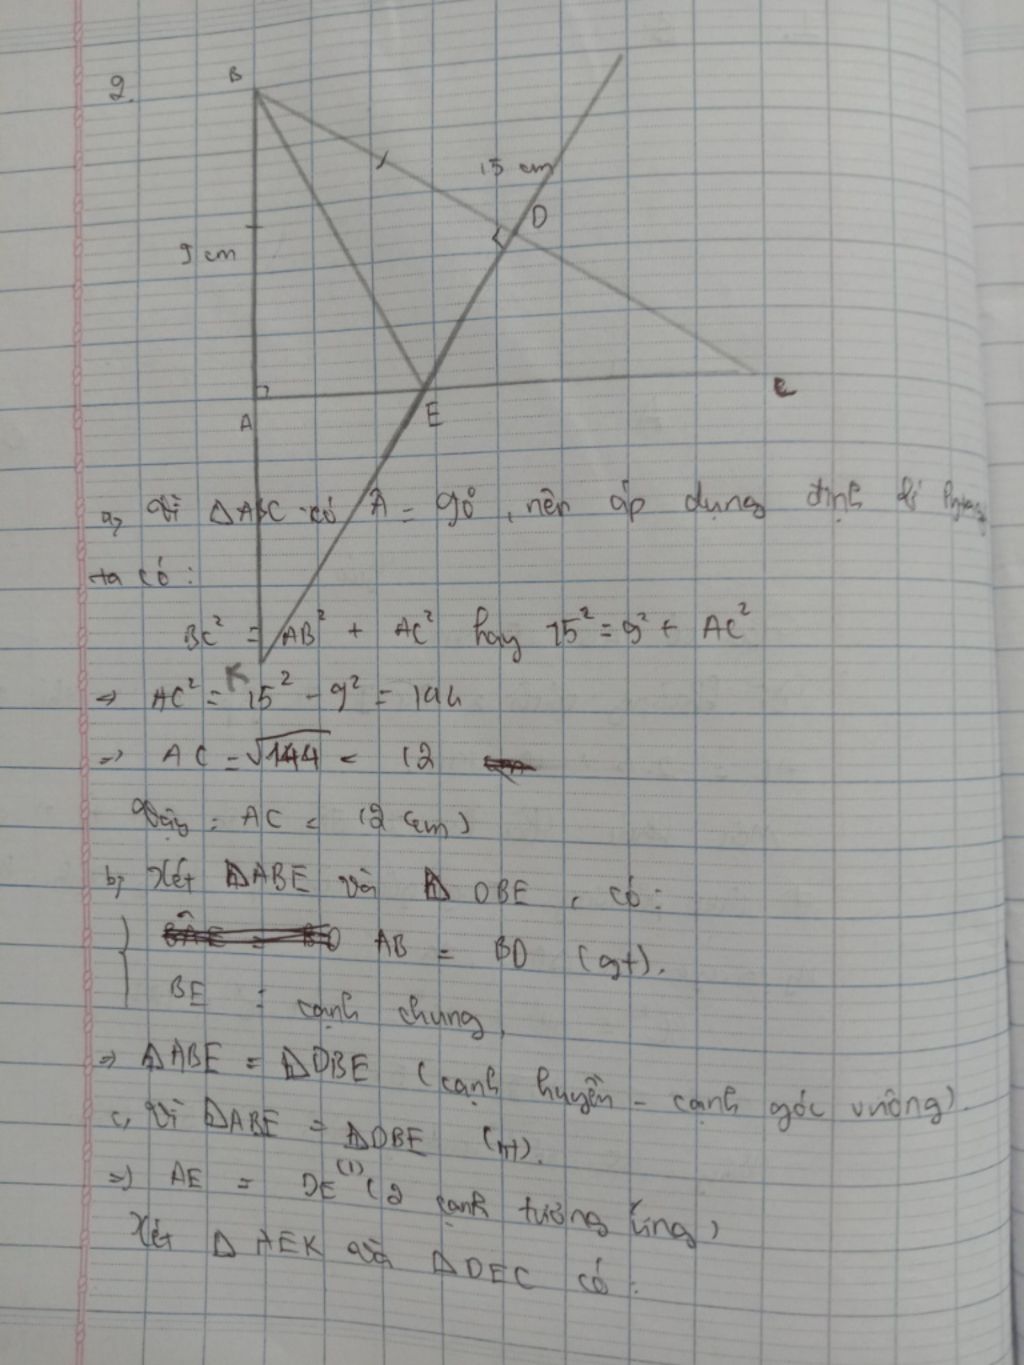 2.
B
15 cm
D
9 cm
A
E
C
a, Vì ΔABC có Â = 90°, nên áp dụng định lí Pytago
ta có:
BC² = AB² + AC² hay 15² = 9² + AC²
K
⇒ AC² = 15² - 9² = 144
⇒ AC = √144 = 12
Vậy: AC = 12 (cm)
b, Xét ΔABE và ΔDBE, có:
AB = BD (gt).
BE : cạnh chung.
⇒ ΔABE = ΔDBE (cạnh huyền - cạnh góc vuông).
c, Vì ΔABE = ΔDBE (cmt).
⇒ AE = DE (1) (2 cạnh tương ứng)
Xét ΔAEK và ΔDEC có: